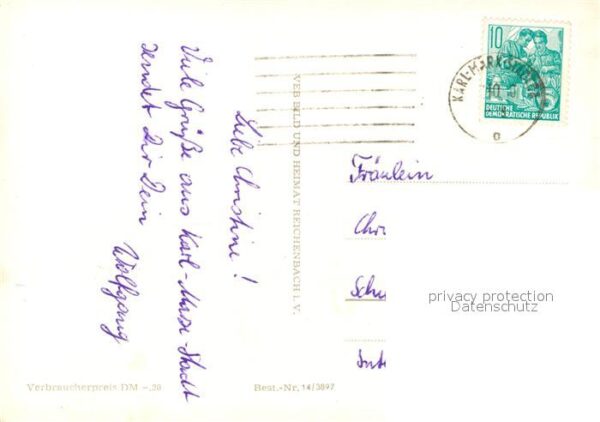 Liebe Christine!
Viele Grüße aus Karl-Marx-Stadt
sendet Dir Dein
Wolfgang
VEB BILD UND HEIMAT REICHENBACH I. V.
10
DEUTSCHE
DEMOKRATISCHE REPUBLIK
KARL-MARX-STADT
Fräulein
Chr
Sch
privacy protection
Datenschutz
Verbraucherpreis DM -,20
Best.-Nr. 14/3897